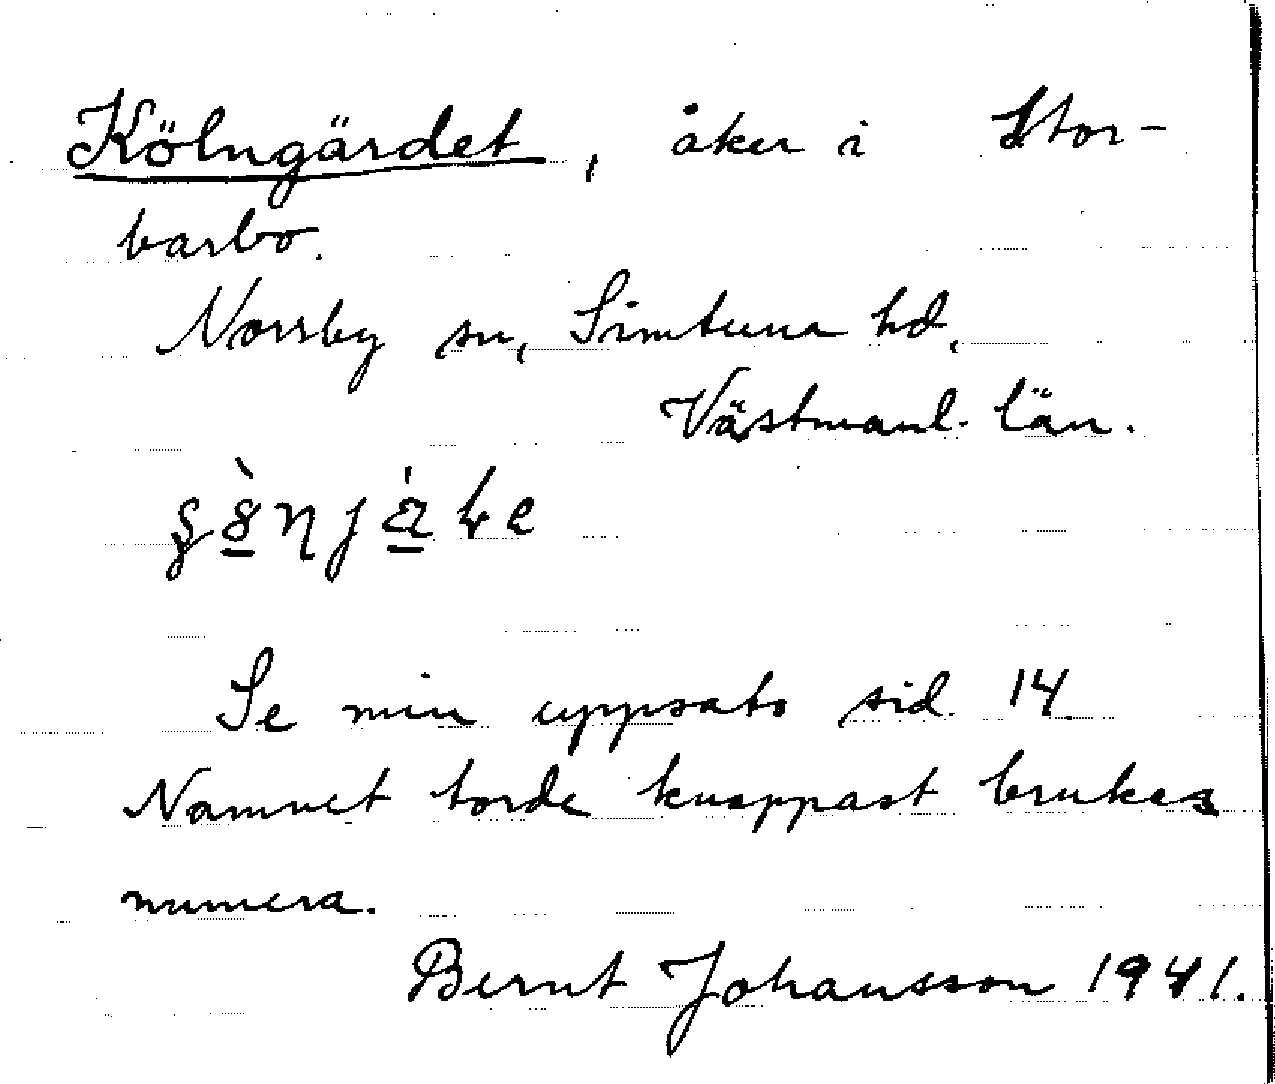 Kölngärdet, åker i Stor-
barbo.
Norrby sn, Simtuna hd,
Västmanl. län.
Se min uppsats sid. 14
Namnet torde knappast brukas
numera.
Bernt Johansson 1941.